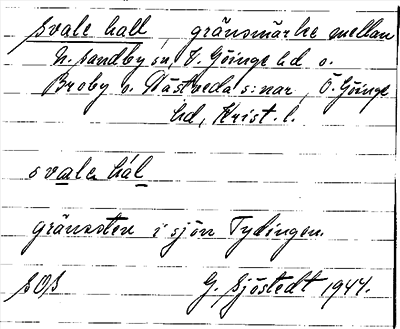 Svale hall, gränsmärke mellan
N. Sandby sn, V. Göinge hd o.
Broby o. Nästveda s:nar, Ö. Göinge
hd, Krist. l.
svale hál
gränssten i sjön Tydingen.
SOS G. Sjöstedt 1944.